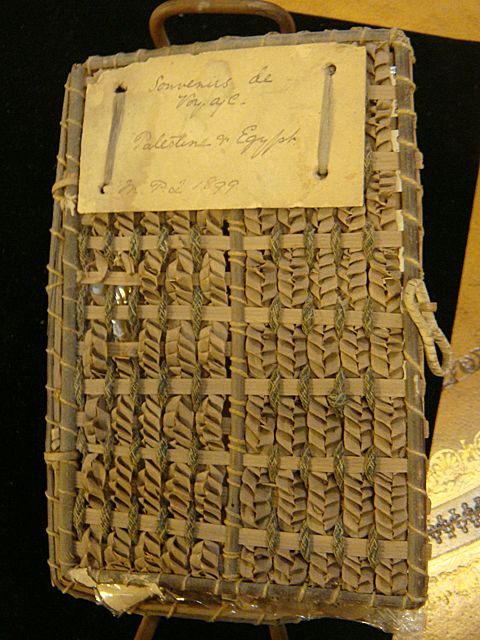 Souvenirs de
Voyage.
Palestine & Egypt
1899